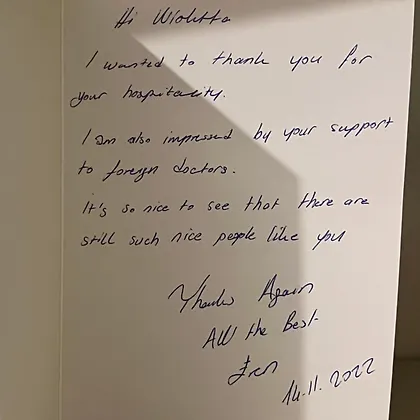 Hi Wioletta
I wanted to thank you for
your hospitality.
I am also impressed by your support
to foreign doctors.
It's so nice to see that there are
still such nice people like you
Thanks Again
All the Best
14.11.2022